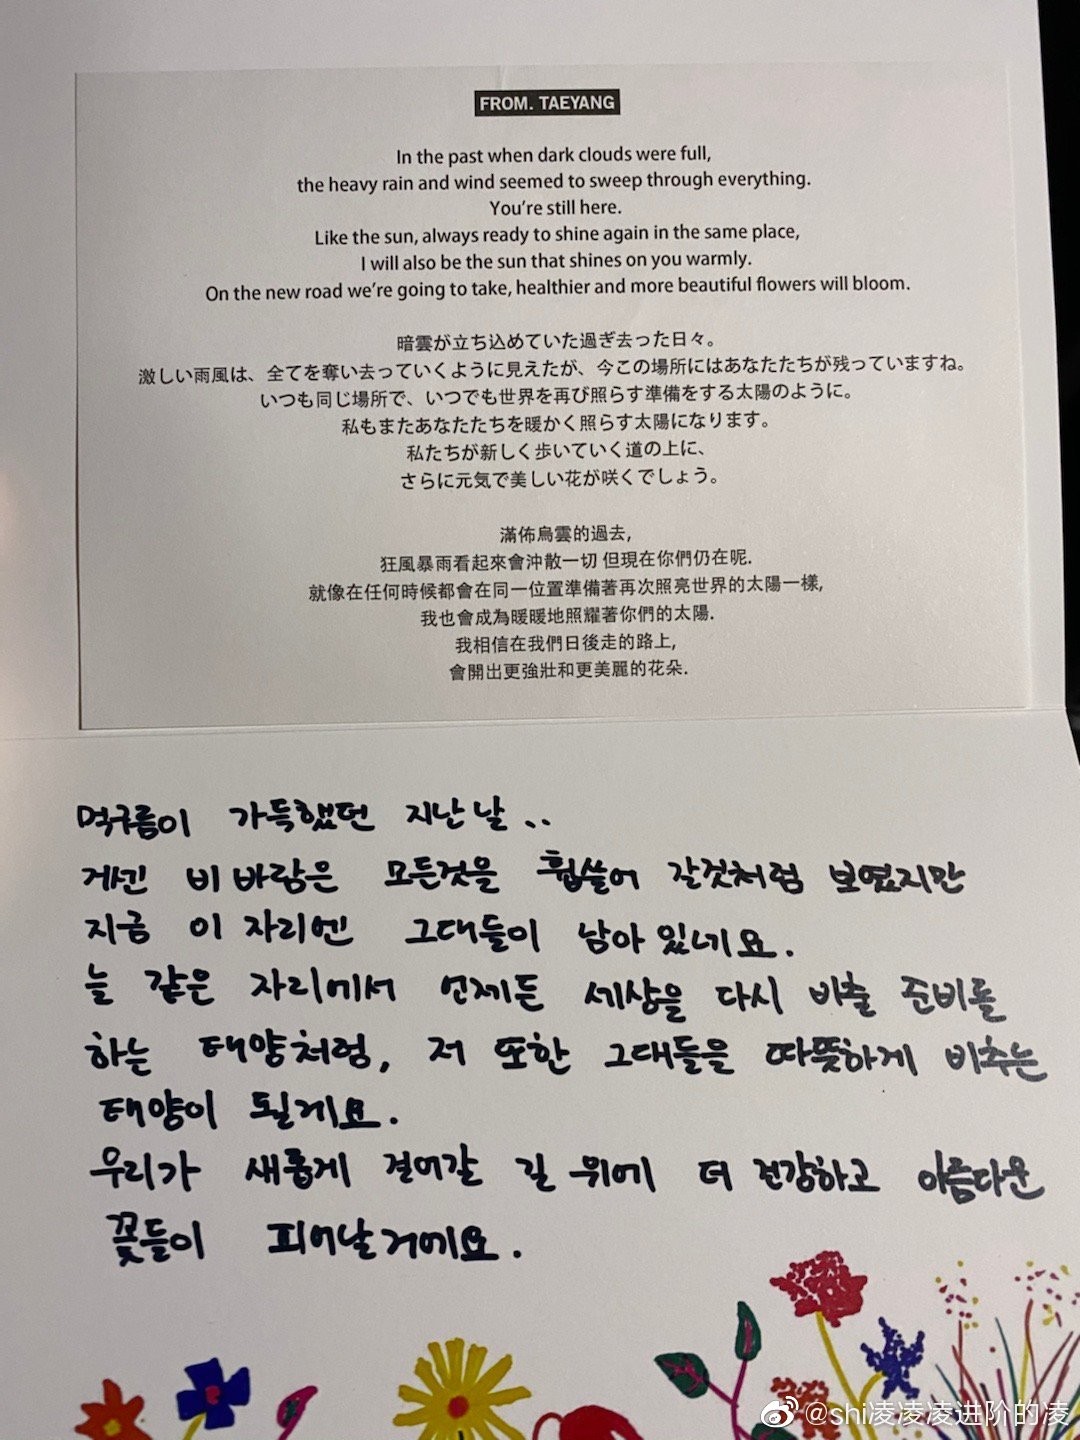 FROM. TAEYANG
In the past when dark clouds were full,
the heavy rain and wind seemed to sweep through everything.
You're still here.
Like the sun, always ready to shine again in the same place,
I will also be the sun that shines on you warmly.
On the new road we're going to take, healthier and more beautiful flowers will bloom.
暗雲が立ち込めていた過ぎ去った日々。
激しい雨風は、全てを奪い去っていくように見えたが、今この場所にはあなたたちが残っていますね。
いつも同じ場所で、いつでも世界を再び照らす準備をする太陽のように。
私もまたあなたたちを暖かく照らす太陽になります。
私たちが新しく歩いていく道の上に、
さらに元気で美しい花が咲くでしょう。
滿佈烏雲的過去,
狂風暴雨看起來會沖散一切 但現在你們仍在呢.
就像在任何時候都會在同一位置準備著再次照亮世界的太陽一樣,
我也會成為暖暖地照耀著你們的太陽.
我相信在我們日後走的路上,
會開出更強壯和更美麗的花朵.
먹구름이 가득했던 지난날..
게센 비바람은 모든것을 휩쓸어 갈것처럼 보였지만
지금 이 자리엔 그대들이 남아있네요.
늘 같은 자리에서 언제든 세상을 다시 비출 준비를
하는 태양처럼, 저 또한 그대들을 따뜻하게 비추는
태양이 될게요.
우리가 새롭게 걸어갈 길 위에 더 건강하고 아름다운
꽃들이 피어날거에요.
@shi凌凌凌进阶的凌